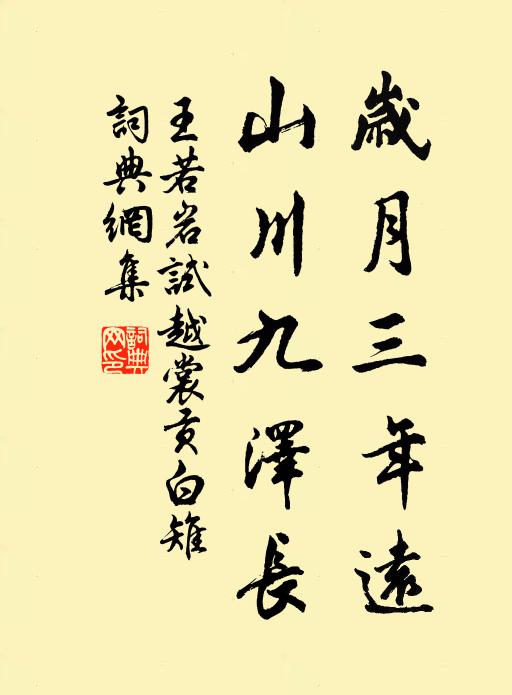 歲月三年遠
山川九澤長
王若岩試越裳貢白雉
詞典網集
詞典網印